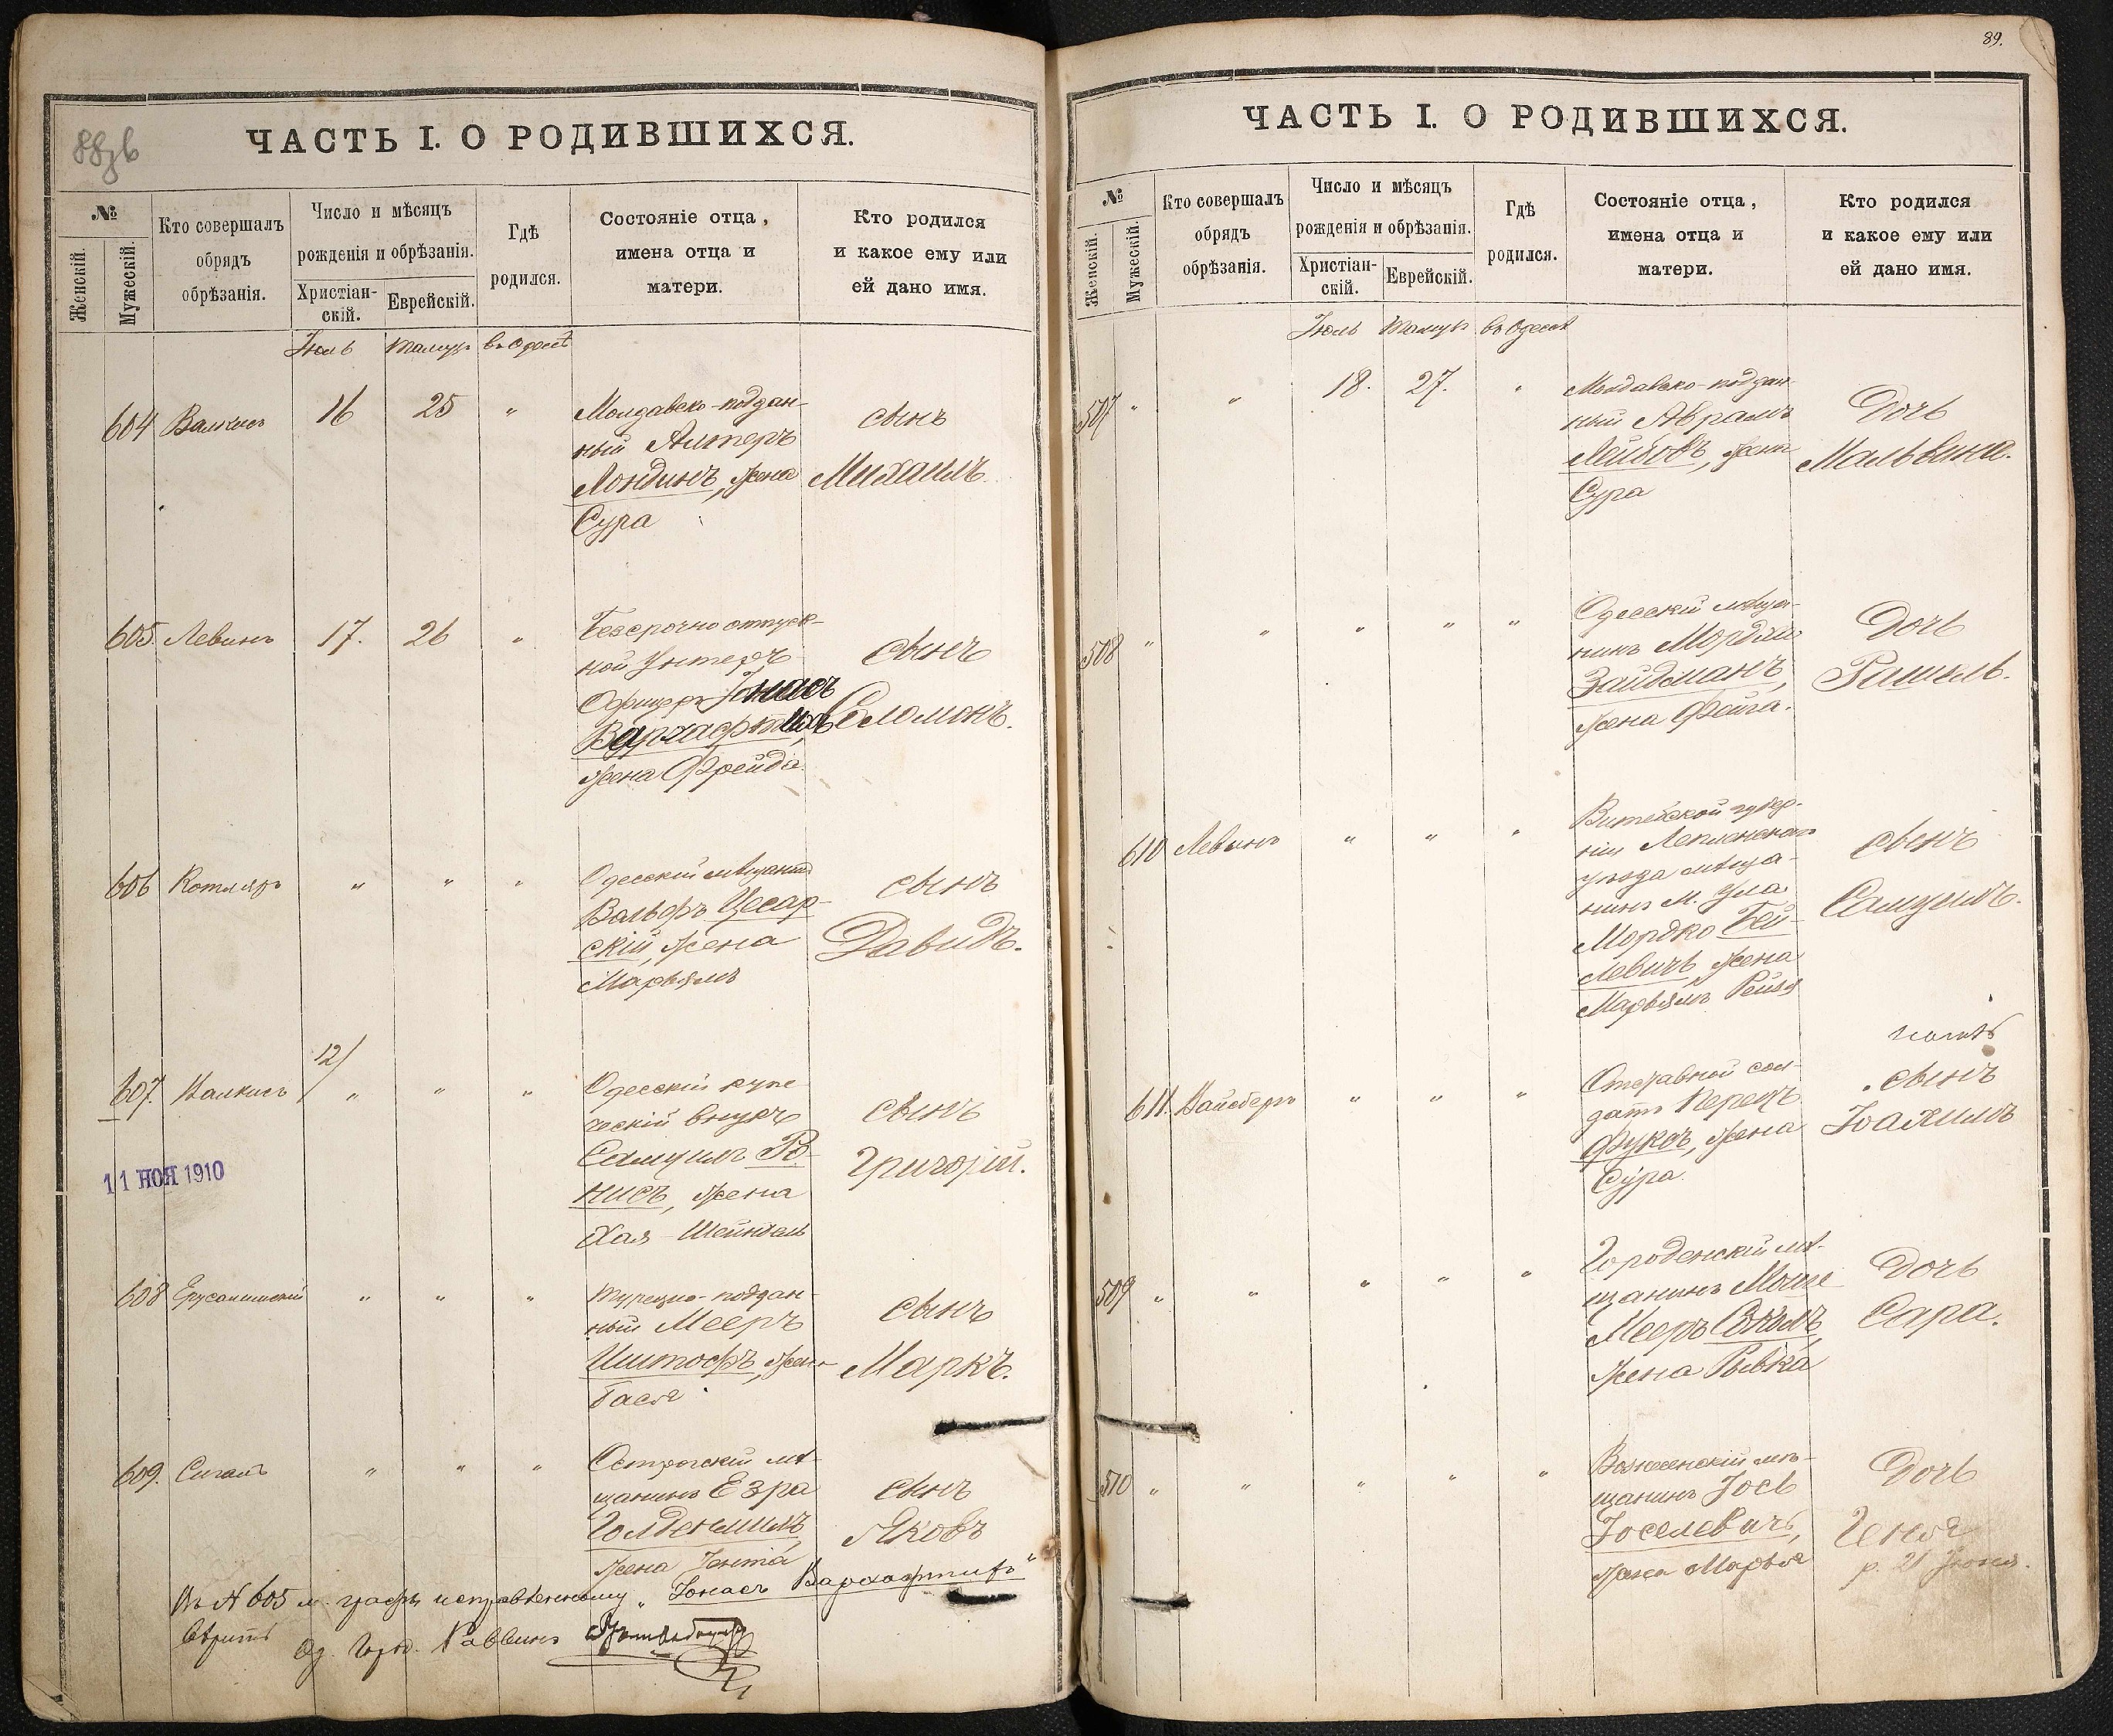 88зв
ЧАСТЬ I. О РОДИВШИХСЯ.
№
Женскій.
Мужескій.
Кто совершалъ
обрядъ
обрѣзанія.
Число и мѣсяцъ
рожденія и обрѣзанія.
Христіан-
скій.
Еврейскій.
Гдѣ
родился.
Состояніе отца,
имена отца и
матери.
Кто родился
и какое ему или
ей дано имя.
Іюль Тамузъ въ Одессѣ
604 16 25 "
Молдавско-поддан-
ный Алтеръ
Лондинъ, жена
Сура
сынъ
Михаилъ.
605. Левинъ 17. 26 "
Безсрочно отпуск-
ной Унтеръ
Офицеръ Іонасъ
Вархафтихъ,
жена Фрейда.
сынъ
Соломонъ.
606 Котляръ " " "
Одесскій мѣщанинъ
Вольфъ Цесар-
скій, жена
Марьямъ
сынъ
Давидъ.
12/
607. " " "
11 НОЯ 1910
Одесскій купе
ческій внукъ
Самуилъ Ро-
нисъ, жена
Хая Шейндель
сынъ
Григорій.
608 Ерусалимскій " " "
Турецко-поддан-
ный Мееръ
Иштофъ, жена
Бася
сынъ
Маркъ.
609. Сигалъ " " "
Острогскій мѣ-
щанинъ Езра
Голденмилъ
жена Ента
сынъ
Яковъ
Въ № 605 м. графѣ исправленному „Іонасъ Вархафтихъ“
вѣрить Од. Гор. Раввинъ
89.
ЧАСТЬ I. О РОДИВШИХСЯ.
№
Женскій.
Мужескій.
Кто совершалъ
обрядъ
обрѣзанія.
Число и мѣсяцъ
рожденія и обрѣзанія.
Христіан-
скій.
Еврейскій.
Гдѣ
родился.
Состояніе отца,
имена отца и
матери.
Кто родился
и какое ему или
ей дано имя.
Іюль Тамузъ въ Одессѣ
507 " " 18. 27. "
Молдавско-поддан-
ный Абрамъ
Лейбовъ, жена
Сура
Дочь
Мальвина.
508 " " " " "
Одесскій мѣща-
нинъ Мордхе
Зайдманъ,
жена Фейга.
Дочь
Рашель.
610 Левинъ " " "
Витебской губер-
ніи Лепельскаго
уѣзда мѣща-
нинъ М. Ула
Мордко Бей-
левичъ, жена
Марьямъ Рейзя
сынъ
Самуилъ.
611. Вайсберъ " " "
Отставной сол-
датъ Перецъ
Фуксъ, жена
Сура.
сынъ
Іоахимъ
509 " " " " "
Городенскій мѣ-
щанинъ Моше
Мееръ Сокилъ,
жена Рывка
Дочь
Сара.
510 " " " " "
Вознесенскій мѣ-
щанинъ Іось
Іоселевичъ,
жена Марья
Дочь
Геня
р. 21 Іюня.